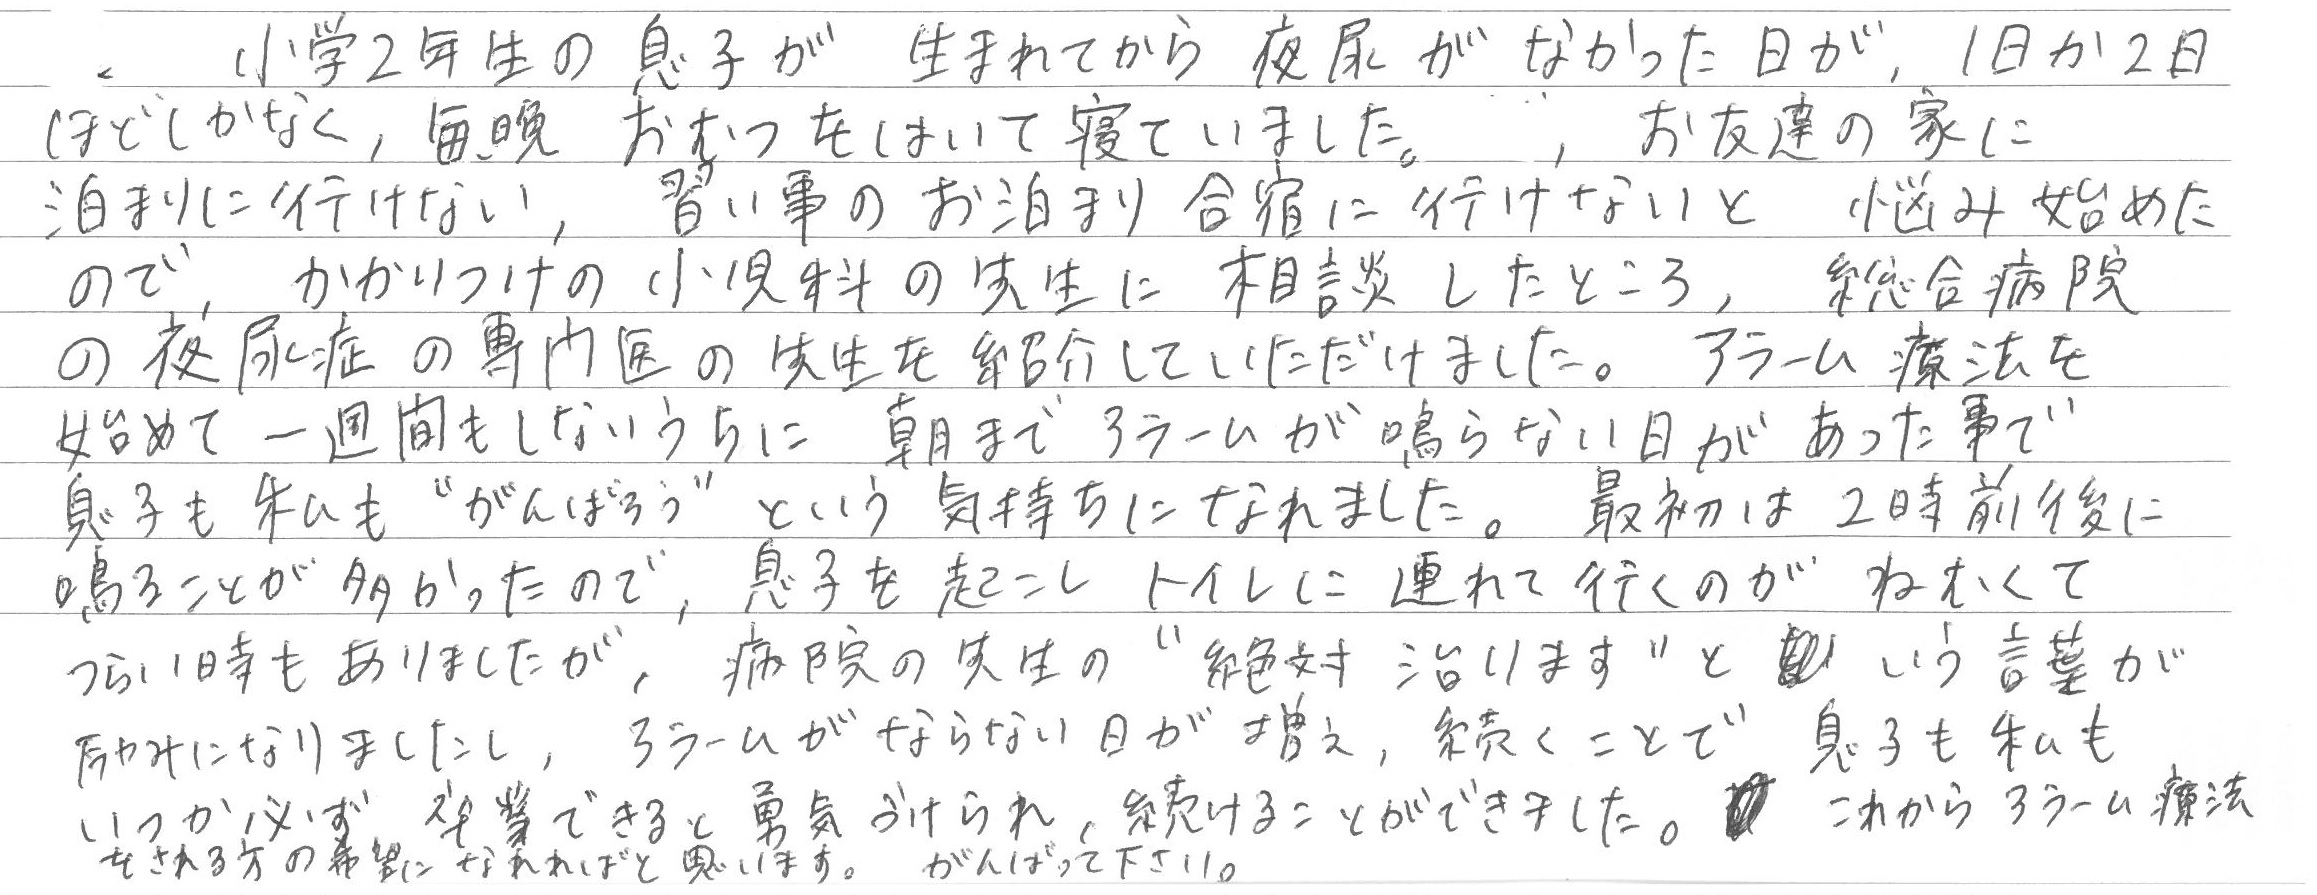 小学2年生の息子が 生まれてから夜尿がなかった日が, 1日か2日
ほどしかなく, 毎晩 おむつをはいて寝ていました。 , お友達の家に
泊まりに行けない, 習い事のお泊まり合宿に行けないと 悩み始めた
ので, かかりつけの小児科の先生に相談したところ, 総合病院
の夜尿症の専門医の先生を紹介していただけました。 アラーム療法を
始めて一週間もしないうちに 朝までアラームが鳴らない日があった事で
息子も私も“がんばろう”という気持ちになれました。 最初は2時前後に
鳴ることが多かったので, 息子を起こしトイレに連れて行くのがねむくて
つらい時もありましたが, 病院の先生の“絶対治ります”と いう言葉が
励みになりましたし, アラームがならない日が増え, 続くことで 息子も私も
いつか必ず 卒業できると勇気づけられ, 続けることができました。 これからアラーム療法
をされる方の希望になれればと思います。 がんばって下さい。